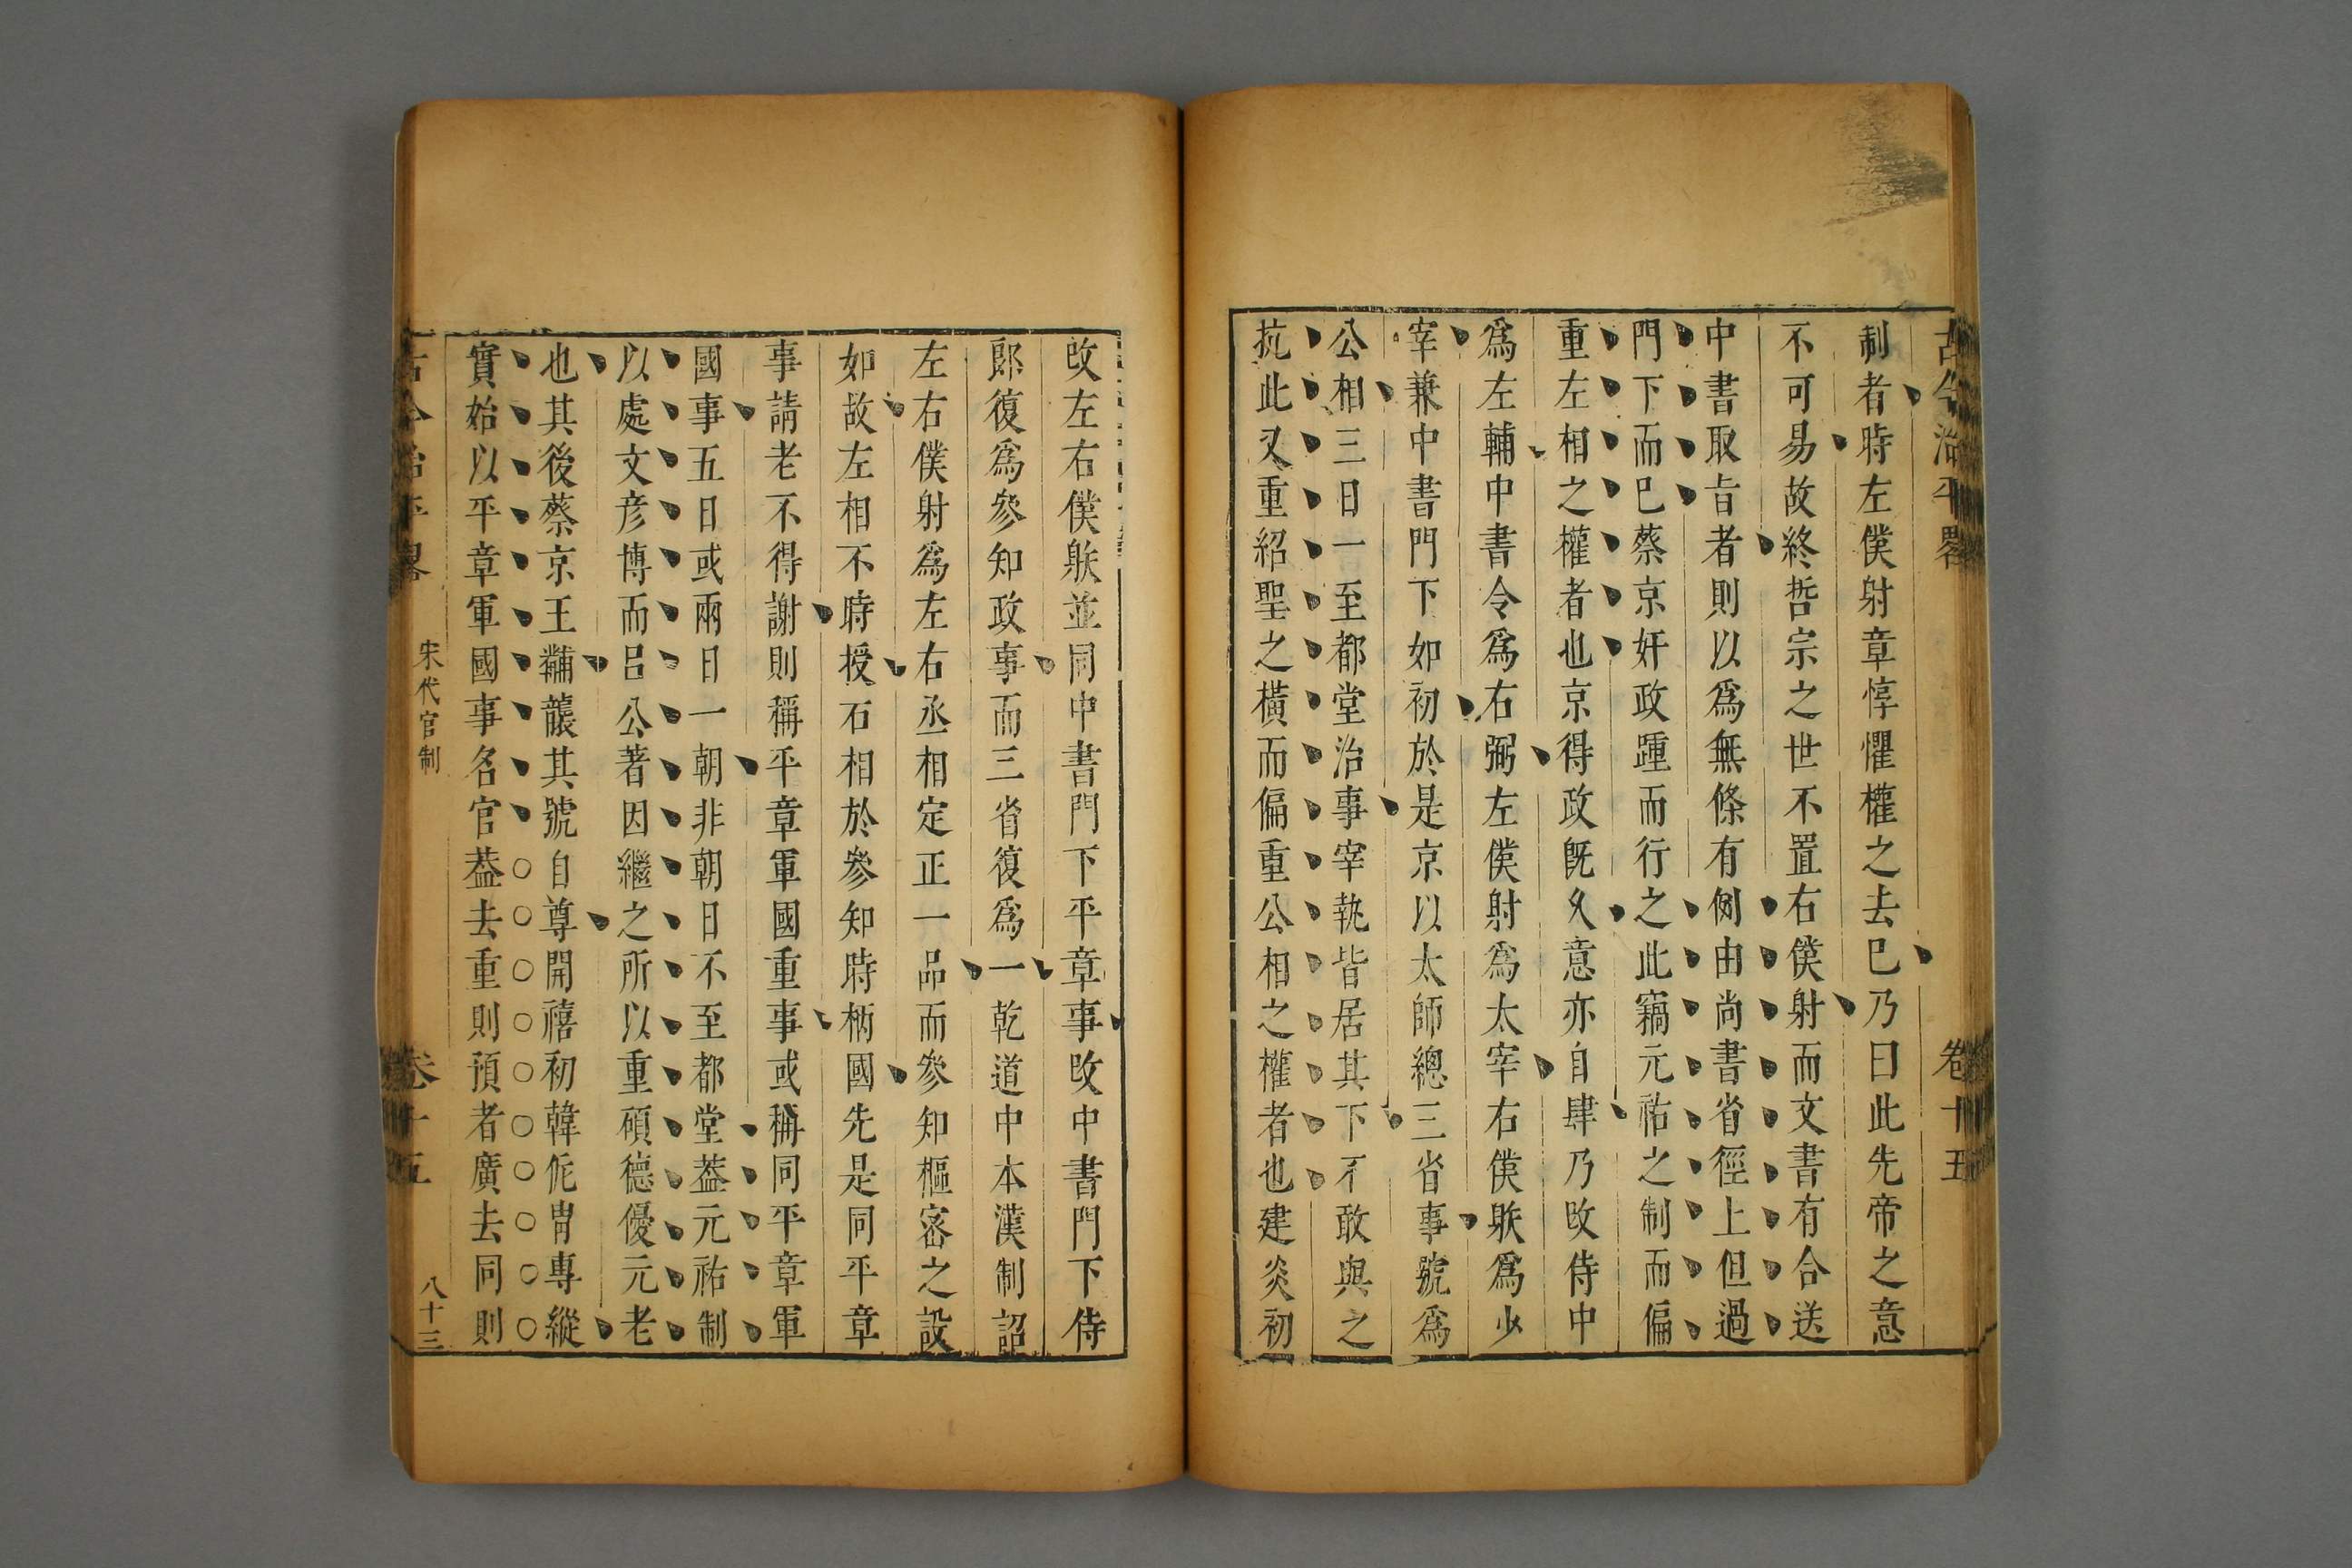 古今治平畧 卷十五
制者時左僕射章惇懼權之去巳乃曰此先帝之意
不可易故終哲宗之世不置右僕射而文書有合送
中書取旨者則以爲無條有例由尚書省徑上但過
門下而巳蔡京奸政踵而行之此竊元祐之制而偏
重左相之權者也京得政旣久意亦自肆乃改侍中
爲左輔中書令爲右弼左僕射爲太宰右僕射爲少
宰兼中書門下如初於是京以太師總三省事號爲
公相三日一至都堂治事宰執皆居其下不敢與之
抗此又重紹聖之橫而偏重公相之權者也建炎初
改左右僕射並同中書門下平章事改中書門下侍
郎復爲參知政事而三省復爲一乾道中本漢制詔
左右僕射爲左右丞相定正一品而參知樞密之設
如故左相不時授右相於參知時柄國先是同平章
事請老不得謝則稱平章軍國重事或稱同平章軍
國事五日或兩日一朝非朝日不至都堂葢元祐制
以處文彥博而呂公著因繼之所以重碩德優元老
也其後蔡京王黼襲其號自尊開禧初韓侂胄專縱
實始以平章軍國事名官葢去重則預者廣去同則
古今治平畧 宋代官制 卷十五 八十三